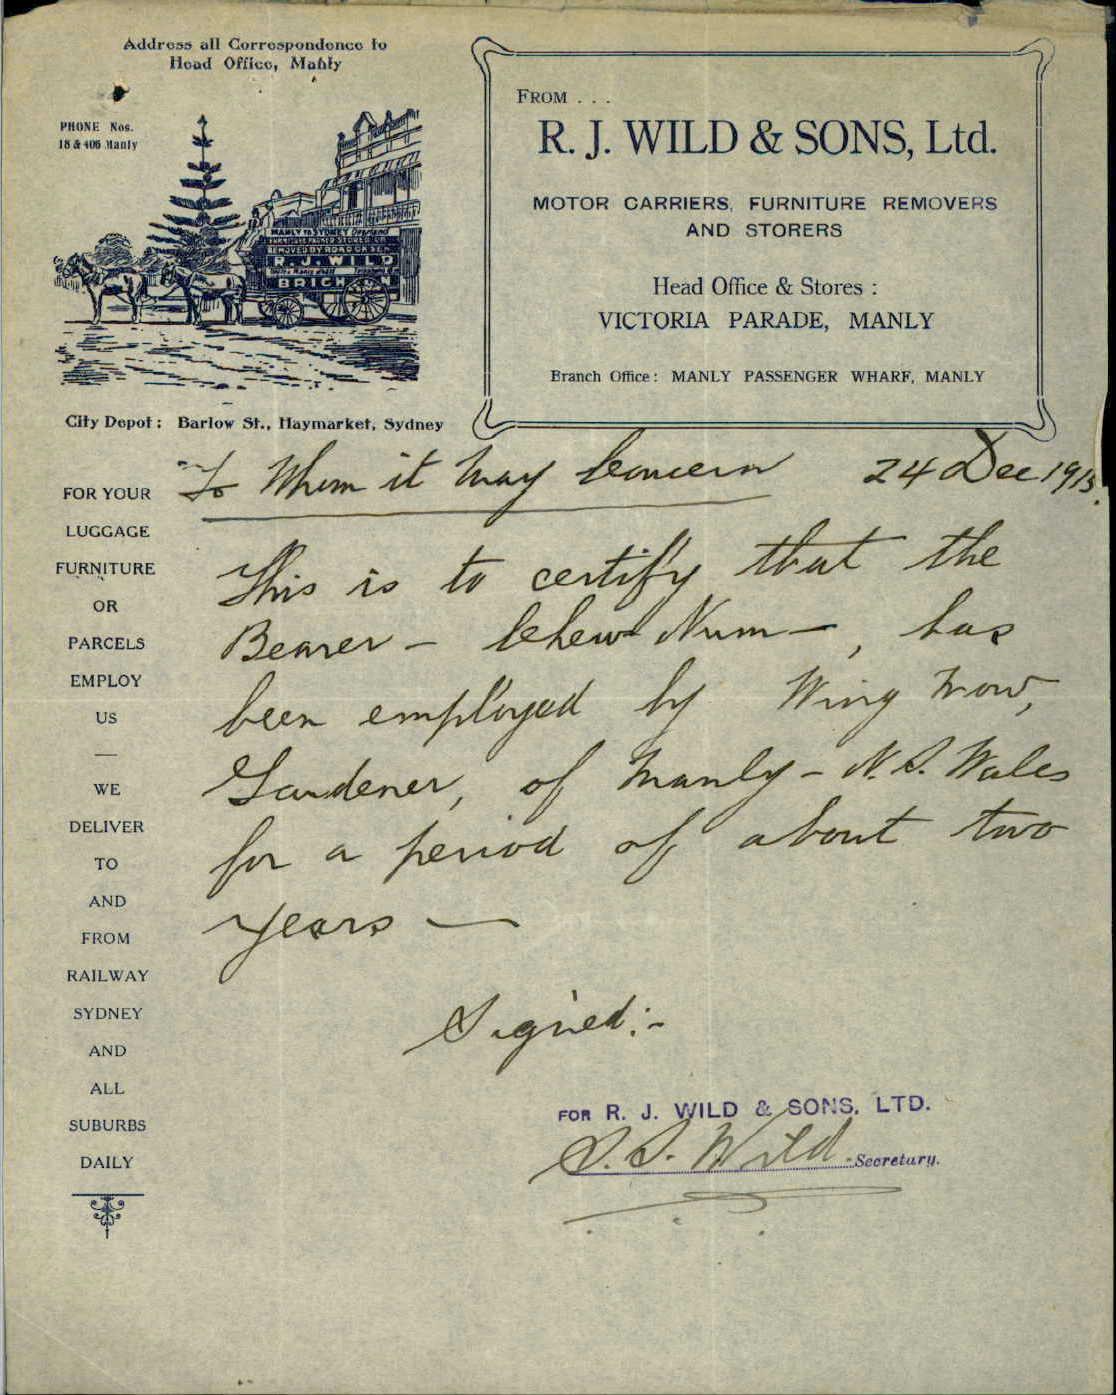 Address all Correspondence to
Head Office, Manly
PHONE Nos.
18 & 406 Manly
MANLY TO SYDNEY
REMOVED BY ROAD OR SEA
R. J. WILD
City Depot: Barlow St., Haymarket, Sydney
FROM . . .
R. J. WILD & SONS, Ltd.
MOTOR CARRIERS, FURNITURE REMOVERS
AND STORERS
Head Office & Stores :
VICTORIA PARADE, MANLY
Branch Office : MANLY PASSENGER WHARF, MANLY
FOR YOUR
LUGGAGE
FURNITURE
OR
PARCELS
EMPLOY
US
—
WE
DELIVER
TO
AND
FROM
RAILWAY
SYDNEY
AND
ALL
SUBURBS
DAILY
To Whom it May Concern 24 Dec 1915.
This is to certify that the
Bearer — Chew Num —, has
been employed by Wing Mow,
Gardener, of Manly — N. S. Wales
for a period of about two
years —
Signed:-
FOR R. J. WILD & SONS, LTD.
S. S. Wild Secretary.